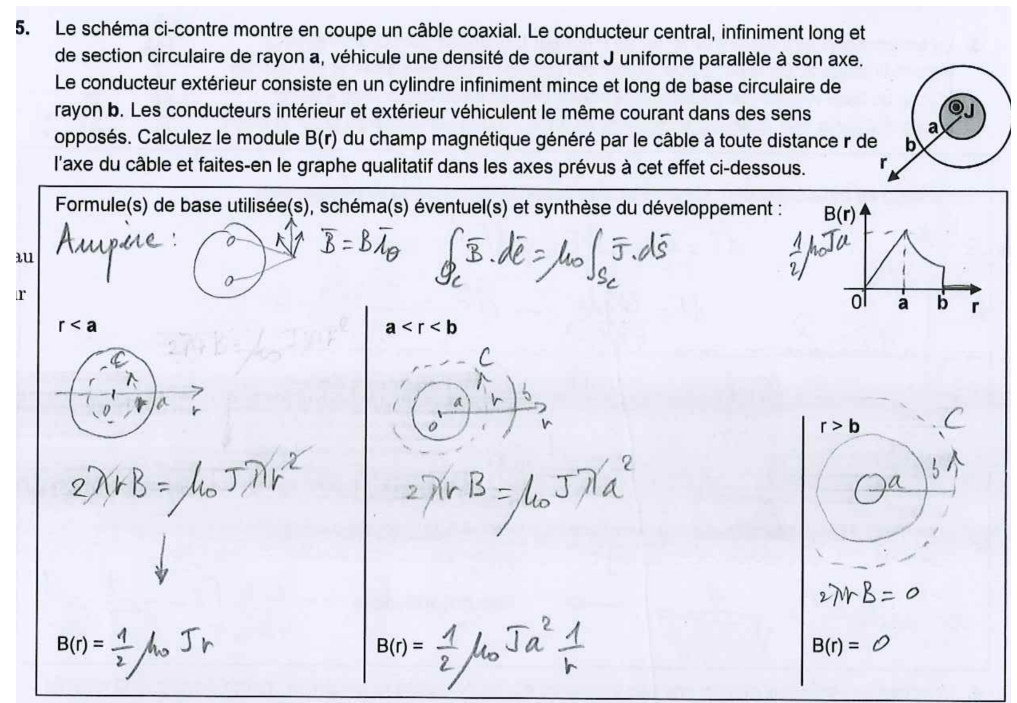 5. Le schéma ci-contre montre en coupe un câble coaxial. Le conducteur central, infiniment long et
de section circulaire de rayon a, véhicule une densité de courant J uniforme parallèle à son axe.
Le conducteur extérieur consiste en un cylindre infiniment mince et long de base circulaire de
rayon b. Les conducteurs intérieur et extérieur véhiculent le même courant dans des sens
opposés. Calculez le module B(r) du champ magnétique généré par le câble à toute distance r de
l'axe du câble et faites-en le graphe qualitatif dans les axes prévus à cet effet ci-dessous.
J
a
b
r
Formule(s) de base utilisée(s), schéma(s) éventuel(s) et synthèse du développement :
au
Ampère : B̄ = B1̄θ ∮c B̄.dℓ̄ = μ₀ ∫Sc J̄.dS̄
B(r)
½ μ₀Ja
0 a b r
r < a
C
0 a r
2πrB = μ₀ Jπr²
B(r) = ½ μ₀ Jr
a < r < b
C
0 a r b
r
2πrB = μ₀ Jπa²
B(r) = ½ μ₀ Ja² 1/r
r > b
C
a b
2πrB = 0
B(r) = 0